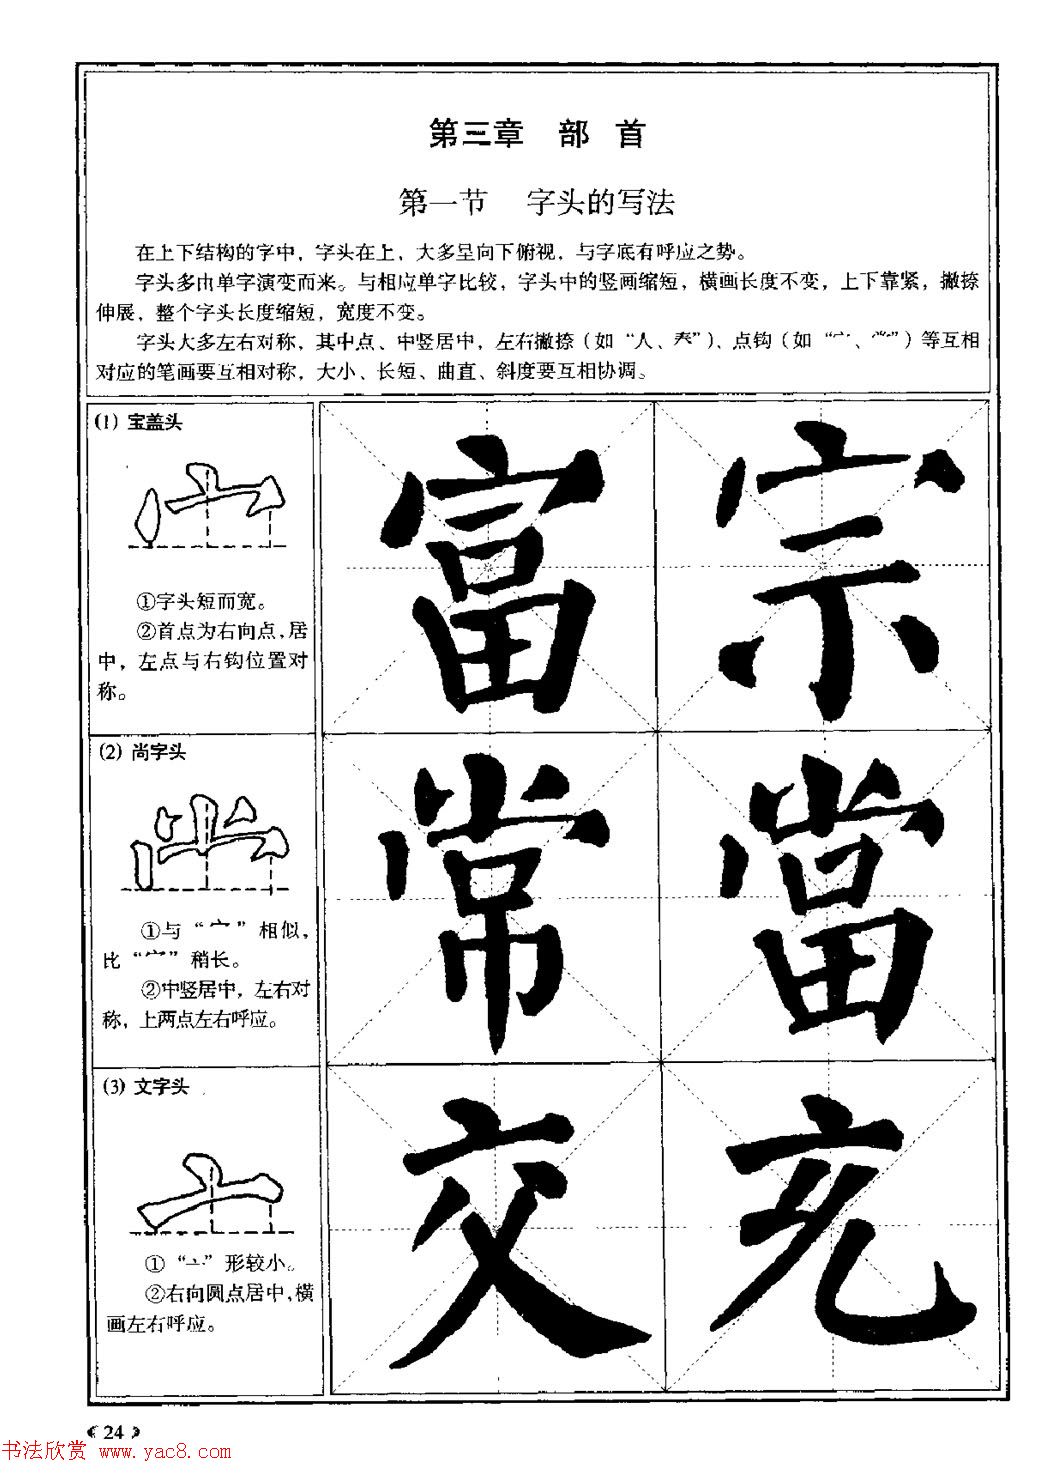 第三章 部 首
第一节 字头的写法
在上下结构的字中，字头在上，大多呈向下俯视，与字底有呼应之势。
字头多由单字演变而来。与相应单字比较，字头中的竖画缩短，横画长度不变，上下靠紧，撇捺
伸展，整个字头长度缩短，宽度不变。
字头大多左右对称，其中点、中竖居中，左右撇捺（如“人、𡗗”）、点钩（如“宀、⺌”）等互相
对应的笔画要互相对称，大小、长短、曲直、斜度要互相协调。
(1) 宝盖头
①字头短而宽。
②首点为右向点，居
中，左点与右钩位置对
称。
富 宗
(2) 尚字头
①与“宀”相似，
比“宀”稍长。
②中竖居中，左右对
称，上两点左右呼应。
常 當
(3) 文字头
①“亠”形较小。
②右向圆点居中，横
画左右呼应。
交 充
《24》
书法欣赏 www.yac8.com